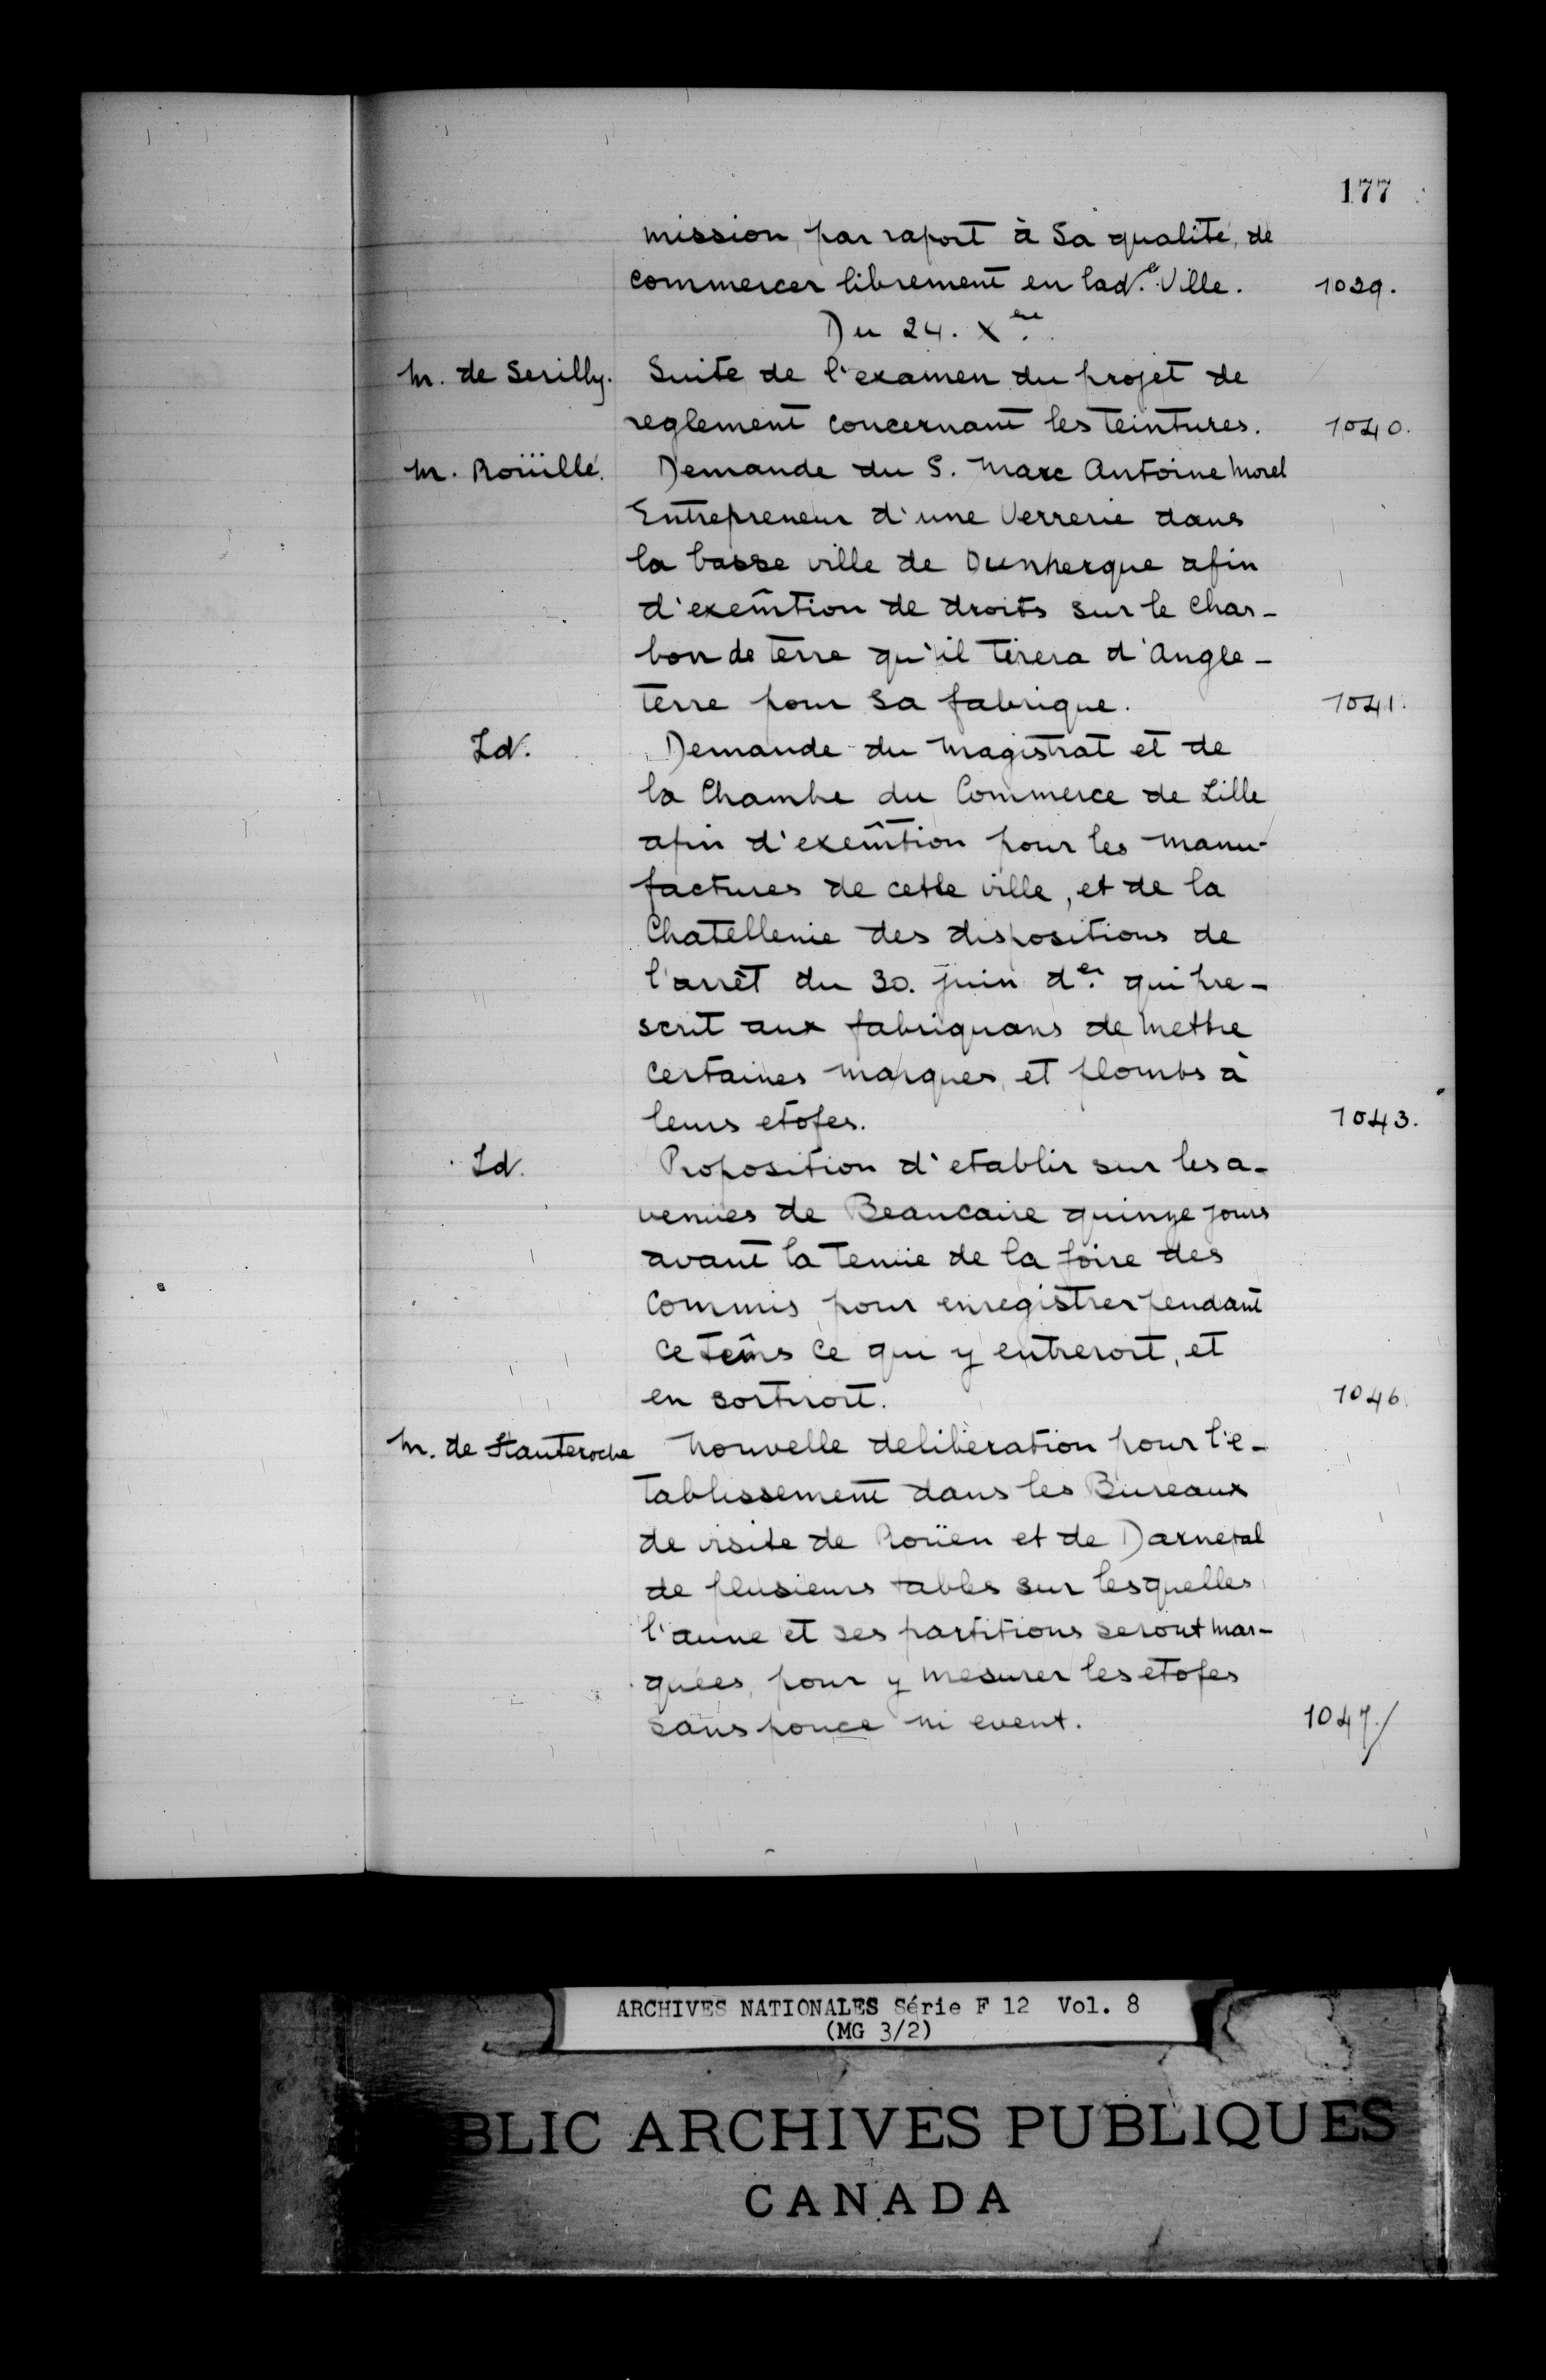 177
mission, par raport à sa qualité, de
commercer librement en lad.e Ville. 1029.
Du 24. Xbre
M. de Serilly. Suite de l'examen du projet de
reglement concernant les teintures. 1040.
M. Roüillé. Demande du S. Marc Antoine Morel
Entrepreneur d'une Verrerie dans
la basse ville de Dunkerque afin
d'exem̃tion de droits sur le char-
bon de terre qu'il tirera d'Angle-
terre pour sa fabrique. 1041.
Id. Demande du Magistrat et de
la Chambre du Commerce de Lille
afin d'exem̃tion pour les manu-
factures de cette ville, et de la
Chatellenie des dispositions de
l'arrêt du 30. juin d.er qui pre-
scrit aux fabriquans de mettre
certaines marques, et plombs à
leurs etofes. 1043.
Id. Proposition d'etablir sur les a-
venües de Beaucaire quinze jours
avant la tenüe de la foire des
Commis pour enregistrer pendant
ce tem̂s ce qui y entreroit, et
en sortiroit. 1046.
M. de Hauteroche Nouvelle déliberation pour l'e-
tablissement dans les Bureaux
de visite de Roüen et de Darnetal
de plusieurs tables sur lesquelles
l'aune et ses partitions seront mar-
quées, pour y mesurer les etofes
sans pouce ni event. 1047./
ARCHIVES NATIONALES Série F 12 Vol. 8
(MG 3/2)
BLIC ARCHIVES PUBLIQUES
CANADA